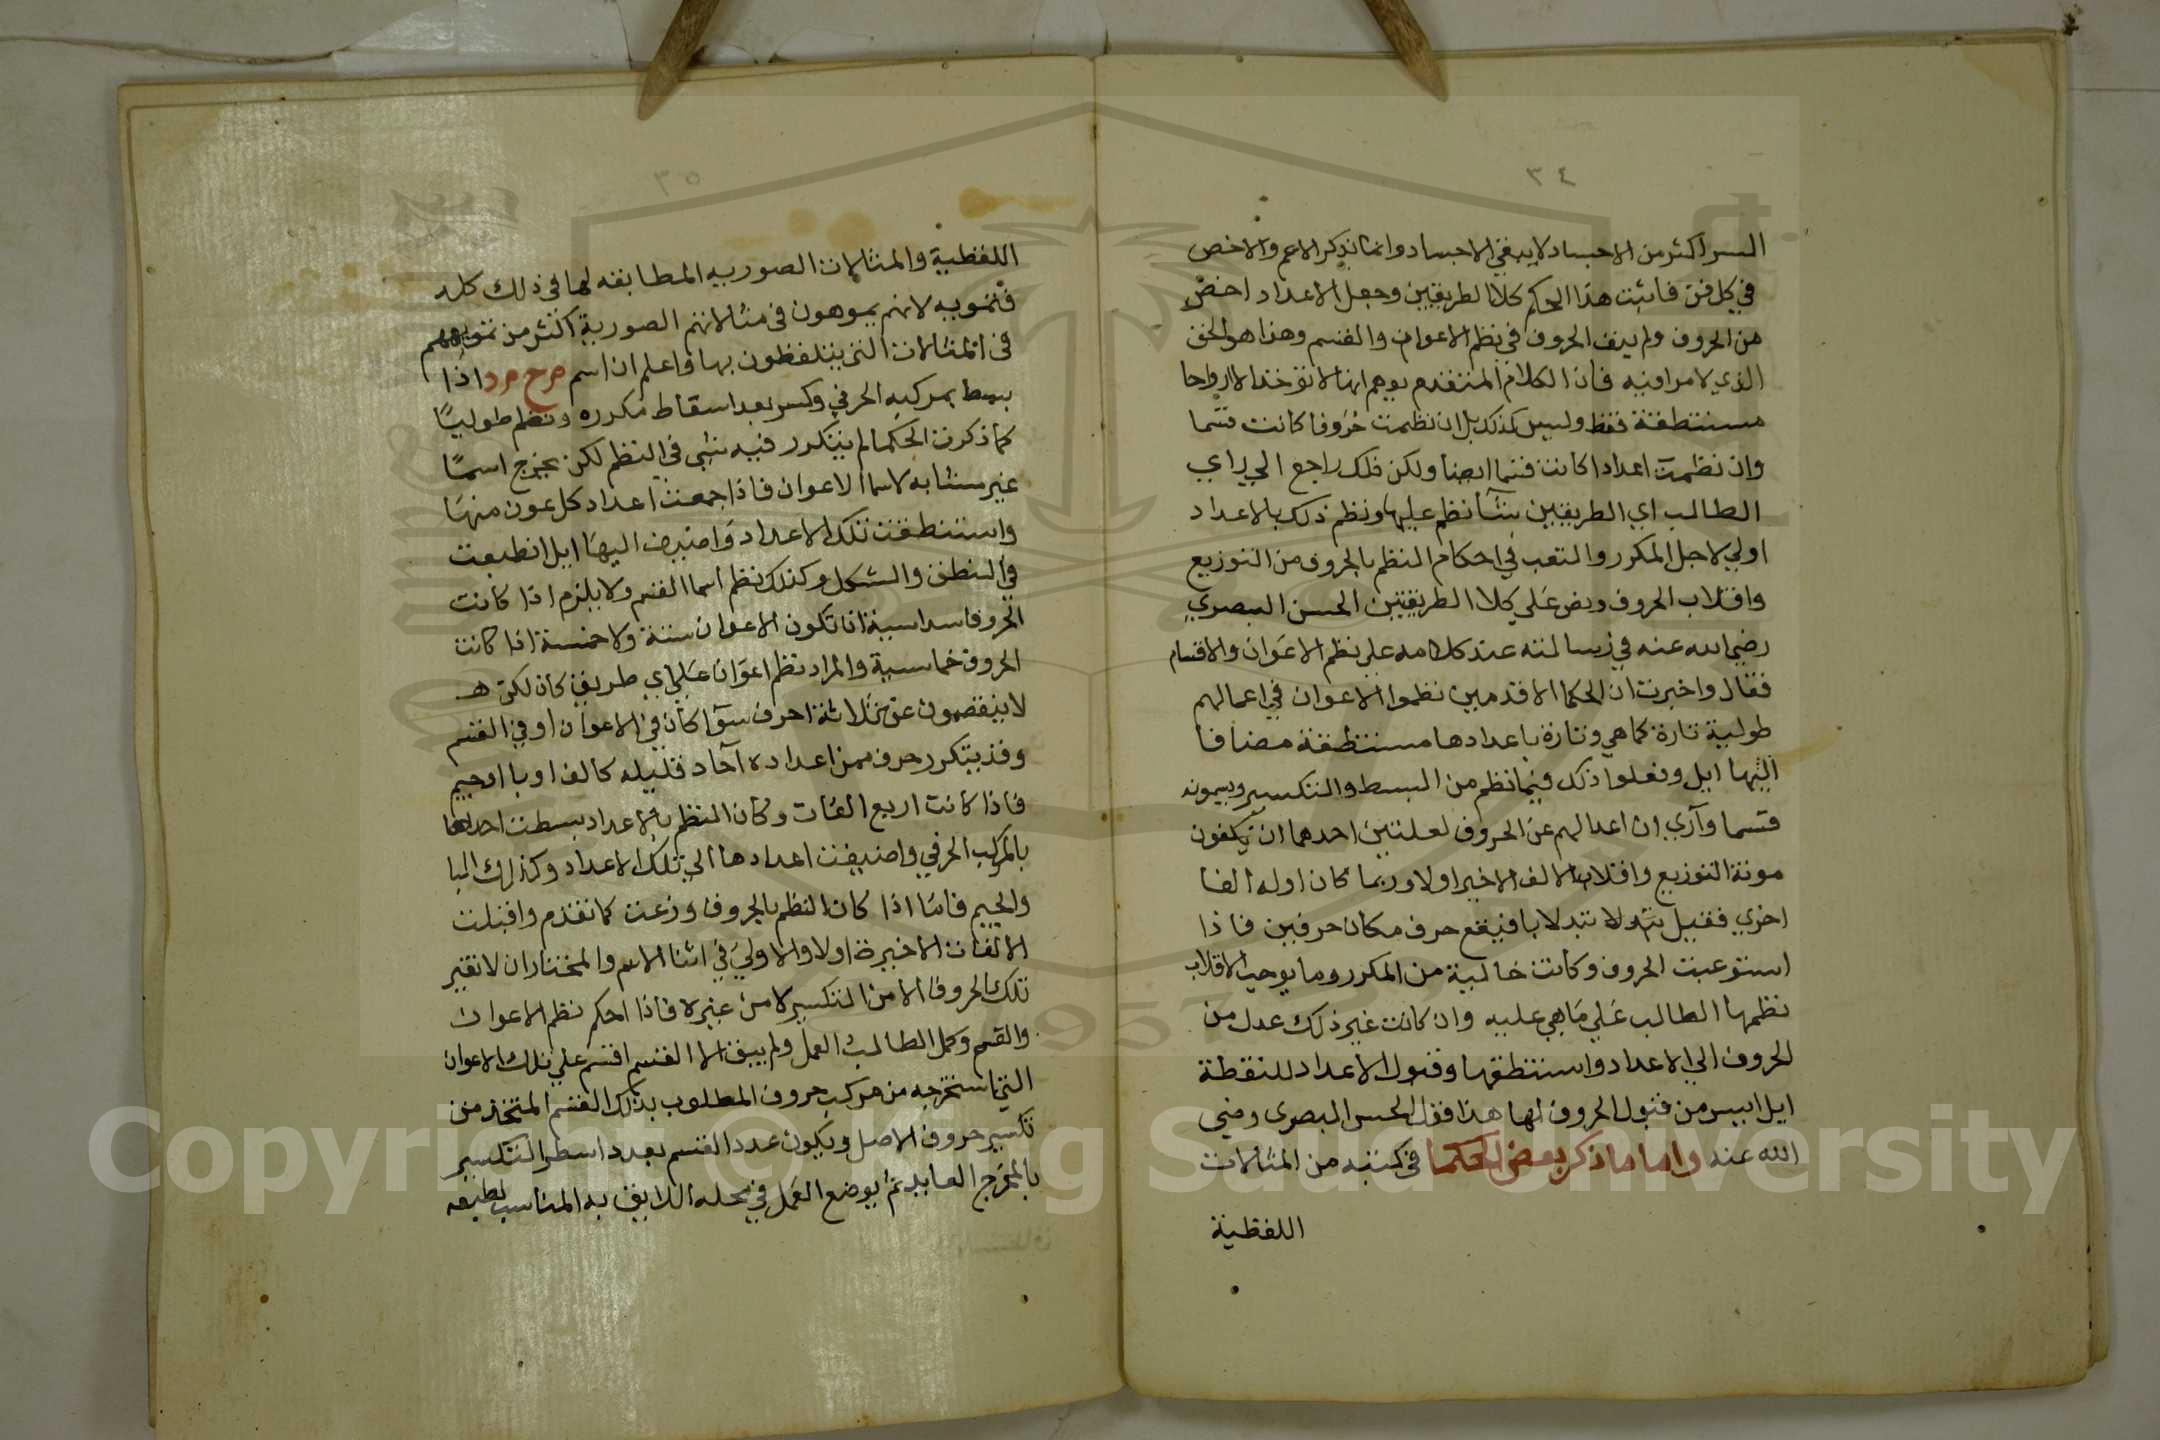 ٣٤
السر اكثر من الاجساد لا يبغي الاجساد وانما نذكر الاعم والاخص
في كل فن فاثبت هذا الحكم كلا الطريقين وجعل الاعداد اخص
من الحروف ولم ينف الحروف في نظم الاعوان والقسم وهذا هو الحق
الذي لا مرا فيه فان الكلام المتقدم يوهم انها لا توخذ الا ازواجا
مستنطقة فقط وليس كذلك بل ان نظمت حروفا كانت قسما
وان نظمت اعدادا كانت قسما ايضا ولكن ذلك راجع الي راي
الطالب اي الطريقين شاء نظم عليها ونظم ذلك بالاعداد
اولي لاجل المكرر والتعب في احكام النظم بالحروف من التوزيع
واقلاب الحروف ونص علي كلا الطريقتين الحسن البصري
رضي الله عنه في رسالته عند كلامه علي نظم الاعوان والاقسام
فقال واخبرت ان الحكما الاقدمين نظموا الاعوان في اعمالهم
طولية تارة كما هي وتارة باعدادها مستنطقة مضافا
اليها ايل وفعلوا ذلك فيما نظم من البسط والتكسير ويسمونه
قسما وآري ان اعدالهم عن الحروف لعلتين احدهما ان يكفون
مونة التوزيع واقلاب الالف الاخير اولا وربما كان اوله الفا
اخري فقيل تبدلا باء فيقع حرف مكان حرفين فاذا
استوعبت الحروف وكانت خالية من المكرر وما يوجب الاقلاب
نظمها الطالب علي ما هي عليه وان كانت غير ذلك عدل من
الحروف الي الاعداد واستنطقها وقبول الاعداد للنقطة
ايل ايسر من قبول الحروف لها هذا قول الحسن البصري رضي
الله عنه واما ما ذكر بعض الحكما في كتبه من المثالات
اللفظية
٣٥
اللفظية والمثالات الصوريه المطابقه لها في ذلك كله
فتمويه لانهم يموهون في مثالاتهم الصورية اكثر من تمويههم
في المثالات التي يتلفظون بها واعلم ان اسم اذا
بسط بمركبه الحرفي وكسر بعد اسقاط مكرره ونظم طوليًا
كما ذكرت الحكما لم يتكرر فيه شي في النظم لكن يخرج اسمًا
غير متشابه لاسما الاعوان فاذا جمعت اعداد كل عون منها
واستنطقت تلك الاعداد واضيف اليها ايل انطبعت
في النطق والشكل وكذلك نظم اسما القسم ولا يلزم اذا كانت
الحروف سداسية ان تكون الاعوان ستة ولا خمسة اذا كانت
الحروف خماسية والمراد نظم اعوان علي اي طريق كان لكن هـ
لا ينقصون عن ثلاثة احرف سوآ كان في الاعوان او في القسم
وقد يتكرر حرف ممن اعداده آحاد قليله كالف او با او جيم
فاذا كانت اربع الفات وكان النظم بالاعداد بسطت احداها
بالمركب الحرفي واضيفت اعدادها الي تلك الاعداد وكذلك البا
والجيم فاما اذا كان النظم بالحروف وزعت كما تقدم واقبلت
الالفات الاخيرة اولا والاولي في اثنا الاسم والمختار ان لا تغير
تلك الحروف الا من التكسير لا من غيره فاذا احكم نظم الاعوان
والقسم وكمل الطالب العمل ولم يبق الا القسم اقسم علي تلك الاعوان
التي استخرجه من مركب حروف المطلوب بذلك القسم المتخذ من
تكسير حروف الاصل ويكون عدد القسم بعدد اسطر التكسير
بالمخرج العابد ثم يوضع العمل في محله اللايق به المناسب لطبعه
Copyright © King Saud University
1957